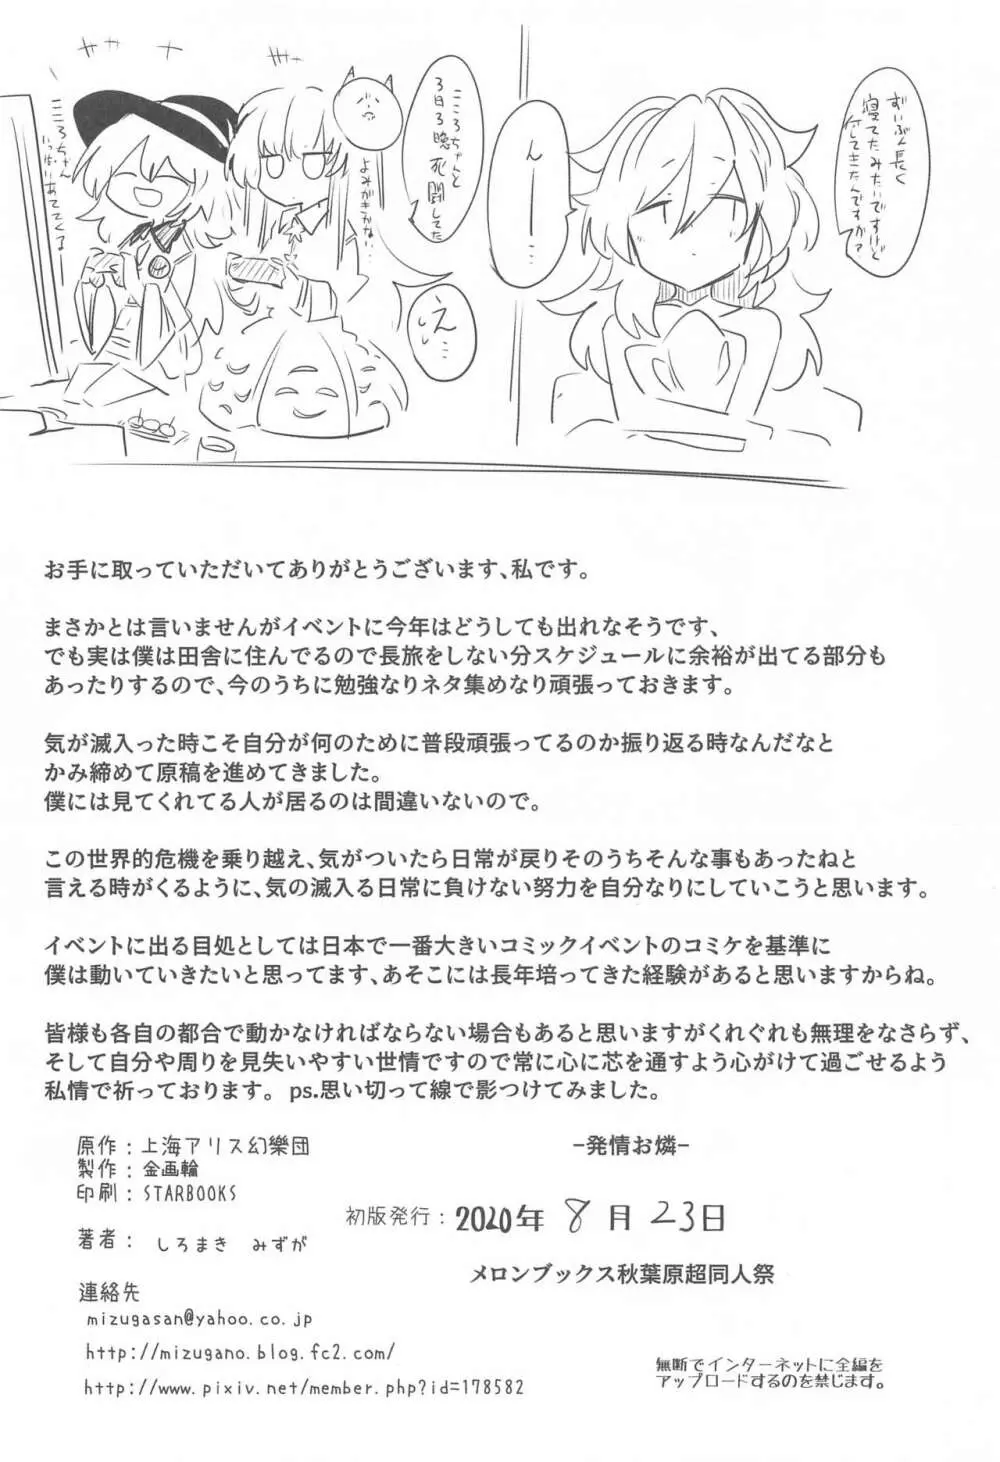 ずいぶん長く
寝てたみたいですけど
何してきたんですか？
ん
こころちゃんと
3日3晩死闘してた
ええ…
よみがきかない…
こころちゃん
いっぱいあててくるー
お手に取っていただいてありがとうございます、私です。
まさかとは言いませんがイベントに今年はどうしても出れなそうです、
でも実は僕は田舎に住んでるので長旅をしない分スケジュールに余裕が出てる部分も
あったりするので、今のうちに勉強なりネタ集めなり頑張っておきます。
気が滅入った時こそ自分が何のために普段頑張ってるのか振り返る時なんだなと
かみ締めて原稿を進めてきました。
僕には見てくれてる人が居るのは間違いないので。
この世界的危機を乗り越え、気がついたら日常が戻りそのうちそんな事もあったねと
言える時がくるように、気の滅入る日常に負けない努力を自分なりにしていこうと思います。
イベントに出る目処としては日本で一番大きいコミックイベントのコミケを基準に
僕は動いていきたいと思ってます、あそこには長年培ってきた経験があると思いますからね。
皆様も各自の都合で動かなければならない場合もあると思いますがくれぐれも無理をなさらず、
そして自分や周りを見失いやすい世情ですので常に心に芯を通すよう心がけて過ごせるよう
私情で祈っております。 ps.思い切って線で影つけてみました。
原作：上海アリス幻樂団
製作：金画輪
印刷：STARBOOKS
著者： しろまき みずが
連絡先
mizugasan@yahoo.co.jp
http://mizugano.blog.fc2.com/
http://www.pixiv.net/member.php?id=178582
−発情お燐−
初版発行：2020年 8月 23日
メロンブックス秋葉原超同人祭
無断でインターネットに全編を
アップロードするのを禁じます。